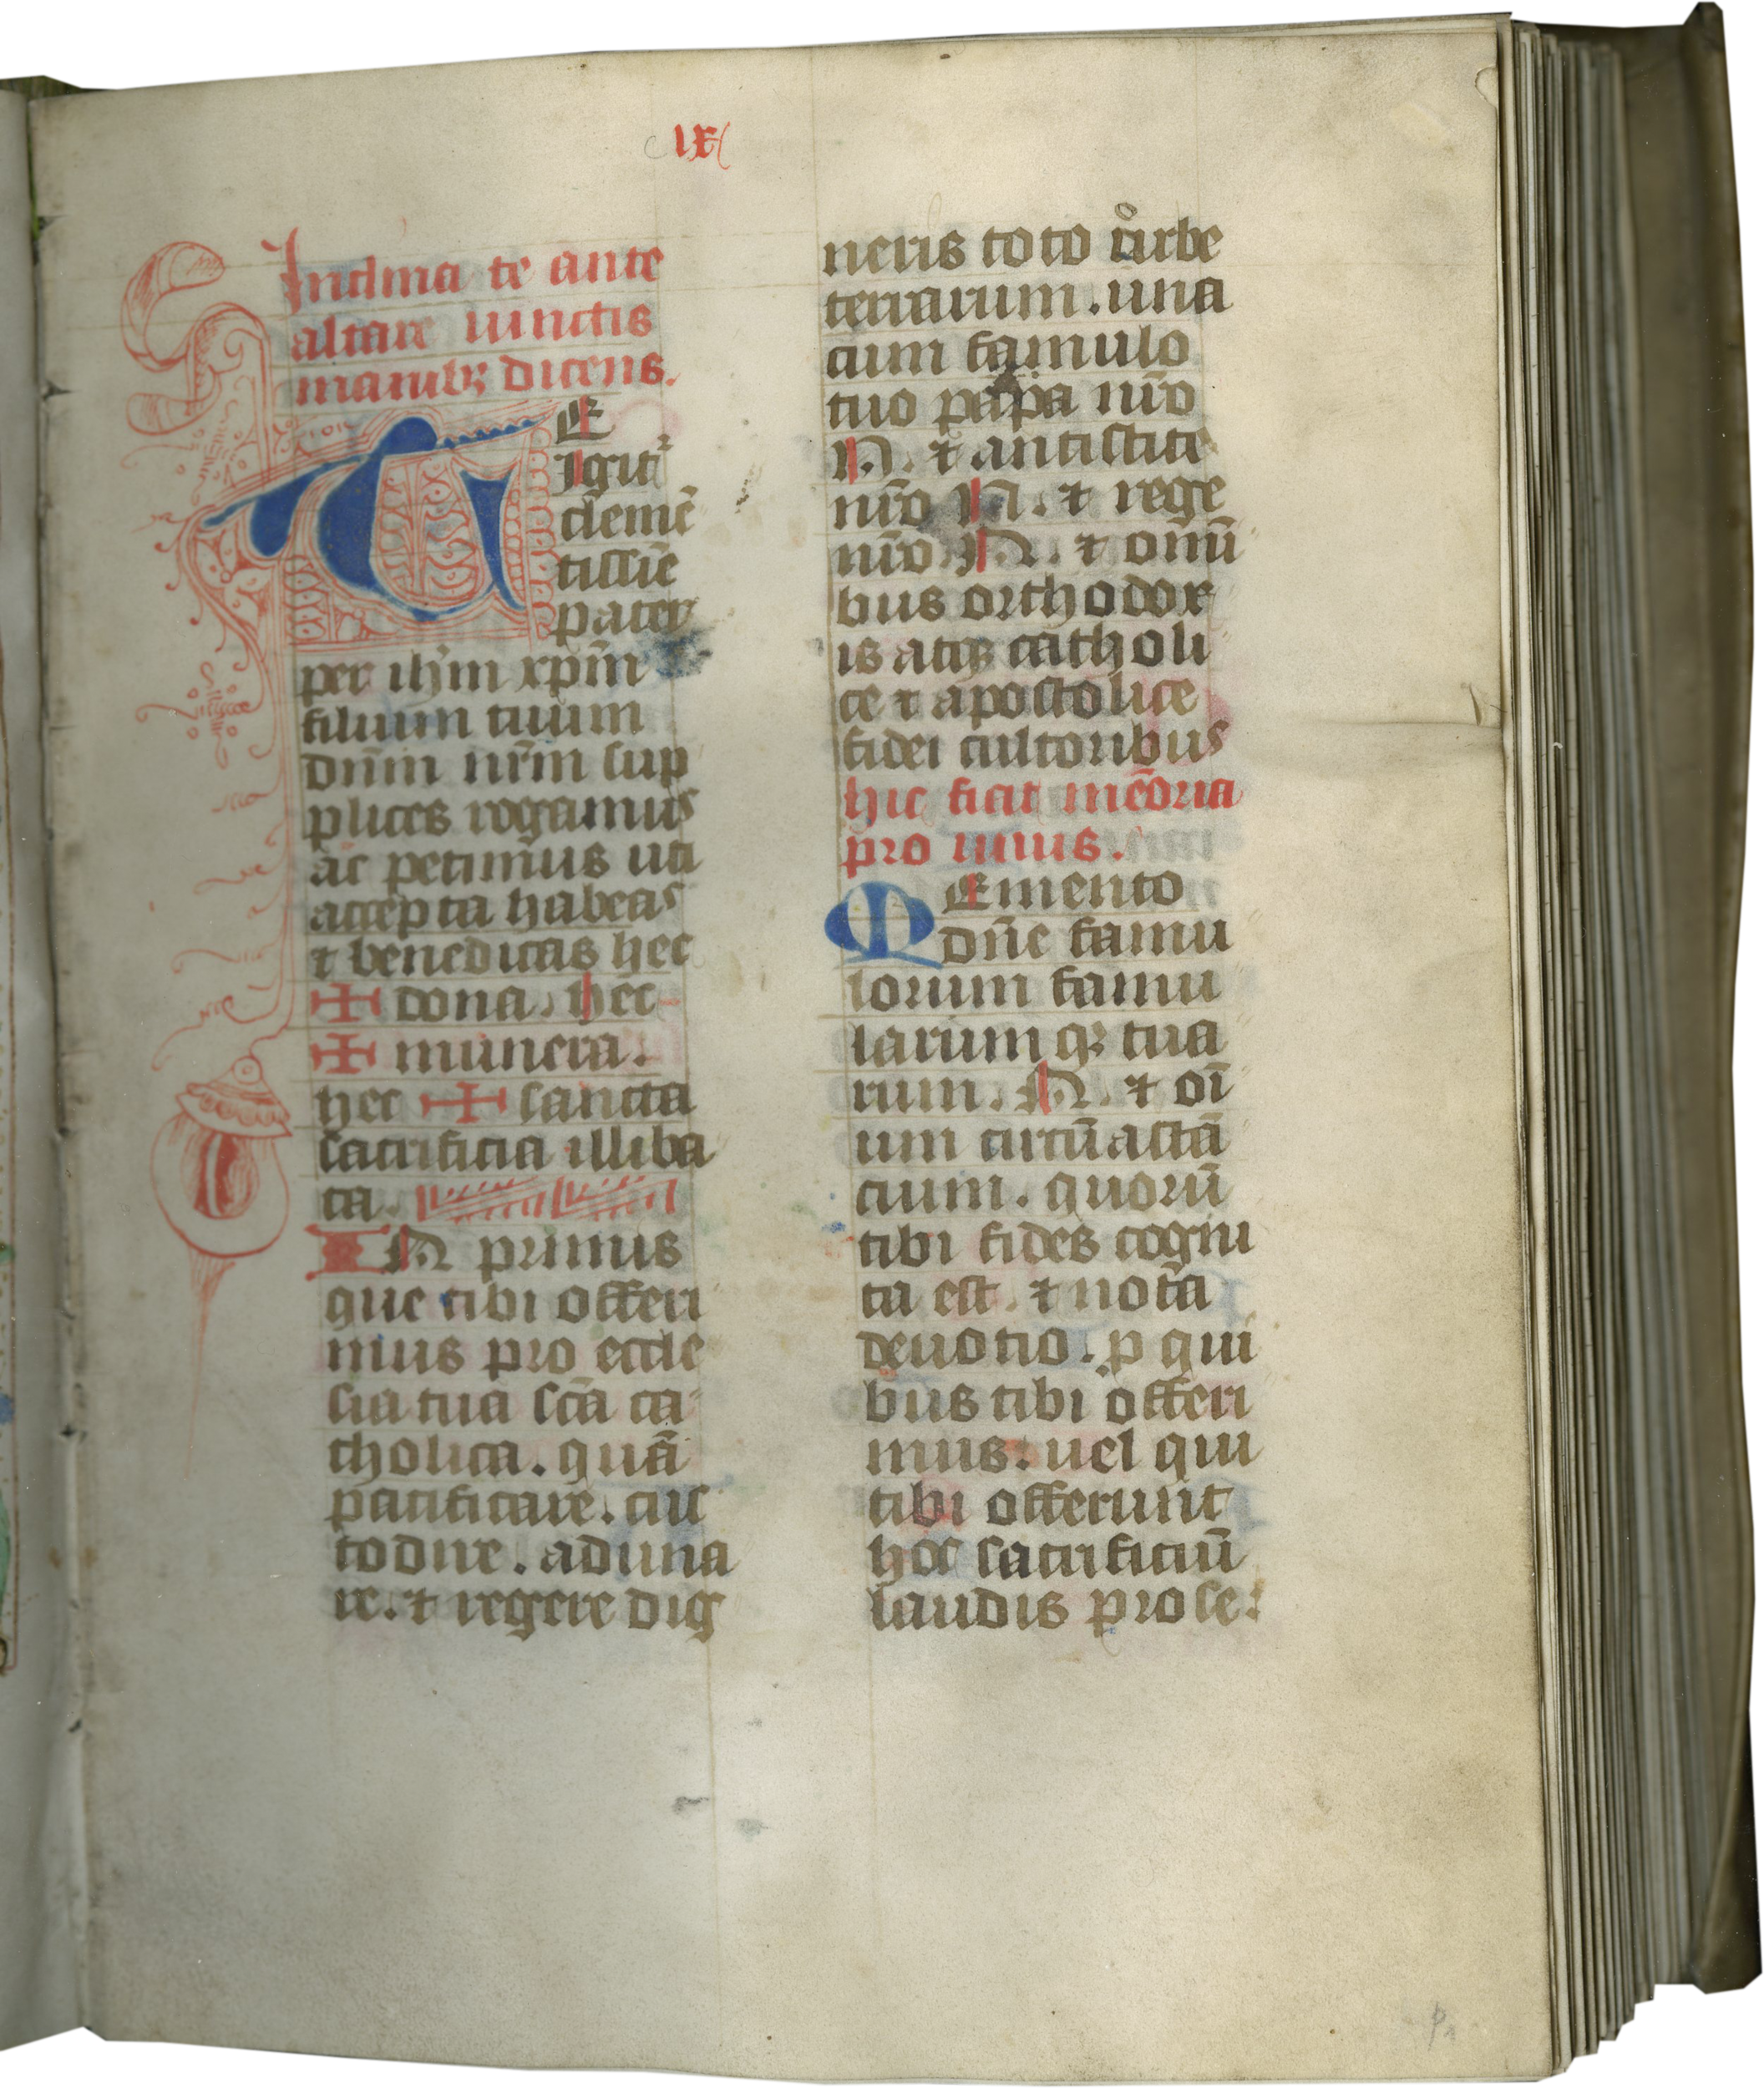 lx
Inclina te ante
altare iunctis
manibꝫ dicens.
TE
Igitᷣ
clemē
tissīe
pater
per ihm̄ xpm̄
filium tuum
dn̄m nr̄m sup
plices rogamus
ac petimus uti
accepta habeas
⁊ benedicas hec
✠ dona. hec
✠ munera.
hec ✠ sancta
sacrificia illiba
ta.
IN primis
que tibi offeri
mus pro eccle
sia tua scā ca
tholica. quā
pacificare. cus
todire. aduna
re. ⁊ regere dig
neris toto orbe
terrarum. una
cum famulo
tuo papa nr̄o
N. ⁊ antistite
nr̄o N. ⁊ rege
nr̄o N. ⁊ om̄i
bus orthodox
is atqꝫ catholi
ce ⁊ apostolice
fidei cultoribus
hic fiat mēoria
pro uiuis.
Memento
dn̄e famu
lorum famu
larum qꝫ tua
rum. N. ⁊ oī
um circūastā
cium. quorū
tibi fides cogni
ta est. ⁊ nota
deuotio. p qui
bus tibi offeri
mus. uel qui
tibi offerunt
hoc sacrificiū
laudis pro se.